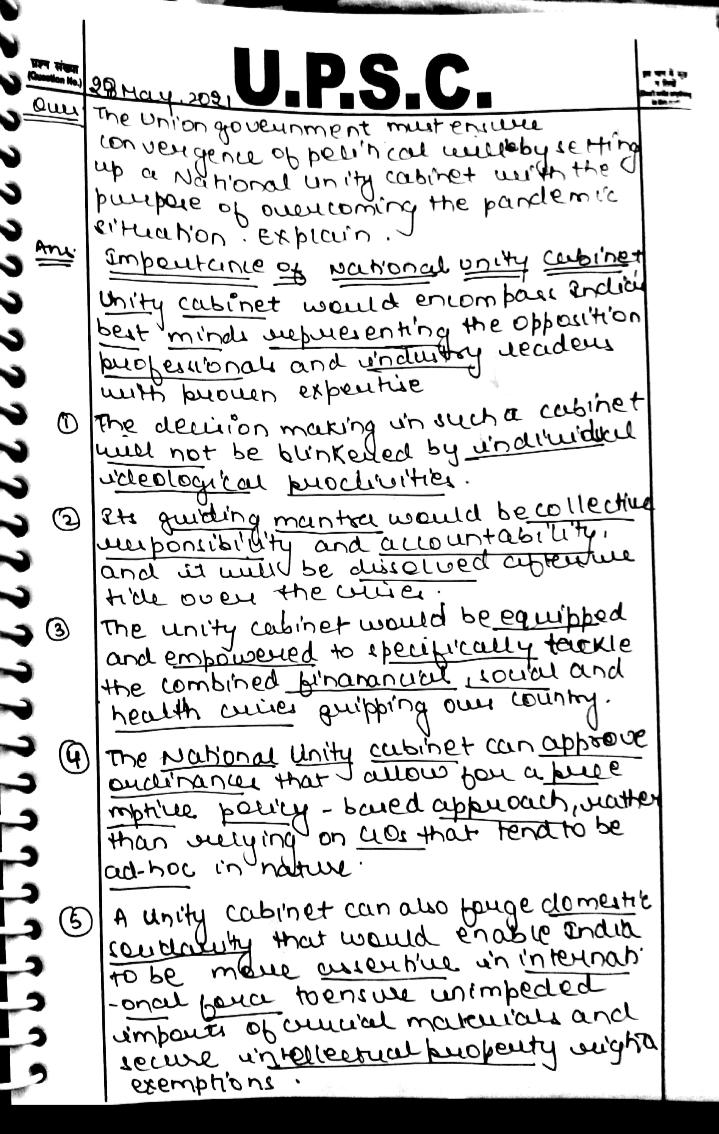 प्रश्न संख्या
(Question No.)
U.P.S.C.
28 May, 2021
Ques
The Union government must ensure
convergence of political will by setting
up a National unity cabinet with the
purpose of overcoming the pandemic
situation. Explain.
Ans.
Importance of National Unity Cabinet
Unity cabinet would encompass India's
best minds representing the opposition
professionals and industry leaders
with proven expertise
① The decision making in such a cabinet
will not be blinkered by individual
ideological proclivities.
② Its guiding mantra would be collective
responsibility and accountability,
and it will be dissolved after we
tide over the crises.
③ The unity cabinet would be equipped
and empowered to specifically tackle
the combined finanancial, social and
health crises gripping our country.
④ The National Unity cabinet can approve
ordinances that allow for a pree
mptive policy-based approach, rather
than relying on GOs that tend to be
ad-hoc in nature.
⑤ A unity cabinet can also forge domestic
solidarity that would enable India
to be more assertive in internati
-onal fora to ensure unimpeded
imports of crucial materials and
secure intellectual property right
exemptions.